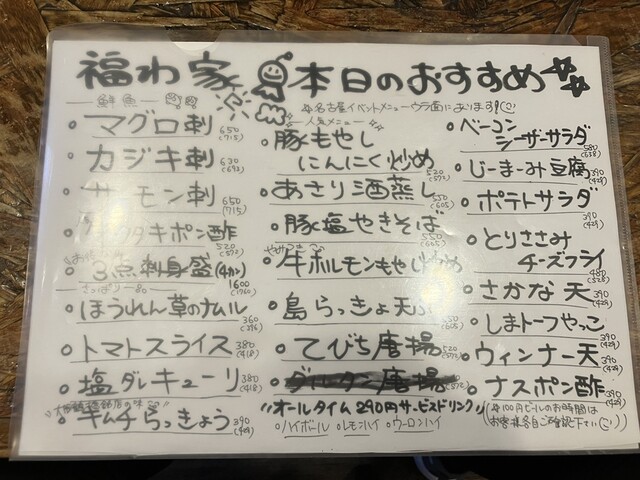 福わ家 本日のおすすめ
鮮魚
マグロ刺 650 (715)
カジキ刺 630 (693)
サーモン刺 650 (715)
タタキポン酢 520 (572)
3点刺身盛(4カン) 1600 (1760)
さっぱり
ほうれん草のナムル 360 (396)
トマトスライス 380 (418)
塩ダレキューリ 380 (418)
キムチらっきょう 390 (429)
名古屋イベントメニューウラ面にあります!
人気メニュー
豚もやし
にんにく炒め 520 (572)
あさり酒蒸し 550 (605)
豚塩やきそば 550 (605)
牛ホルモンもやし炒め
島らっきょ天 550 (605)
てびち唐揚 520 (572)
"オールタイム290円サービスドリンク"
○ハイボール ○レモンハイ ○ウーロンハイ
ベーコン
シーザーサラダ 580 (638)
じーまーみ豆腐 390 (429)
ポテトサラダ 390 (429)
とりささみ
チーズフライ 480 (528)
さかな天 390 (429)
しまトーフやっこ 390 (429)
ウィンナー天 390 (429)
ナスポン酢 390 (429)
100円ビールのお時間は
お客様各自ご確認下さい